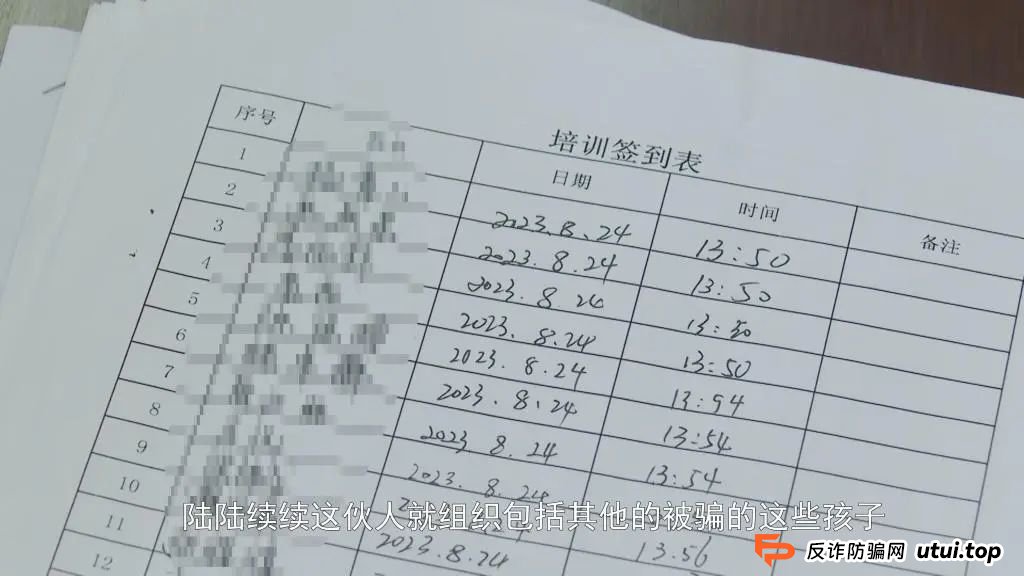 培训签到表
序号 日期 时间 备注
1 2023.8.24 13:50
2 2023.8.24 13:50
3 2023.8.24 13:50
4 2023.8.24 13:50
5 2023.8.24 13:54
6 2023.8.24 13:54
7 2023.8.24 13:54
8 2023.8.24
9 13:56
10 2023.8.24
11
12
陆陆续续这伙人就组织包括其他的被骗的这些孩子
反诈防骗网 utui.top